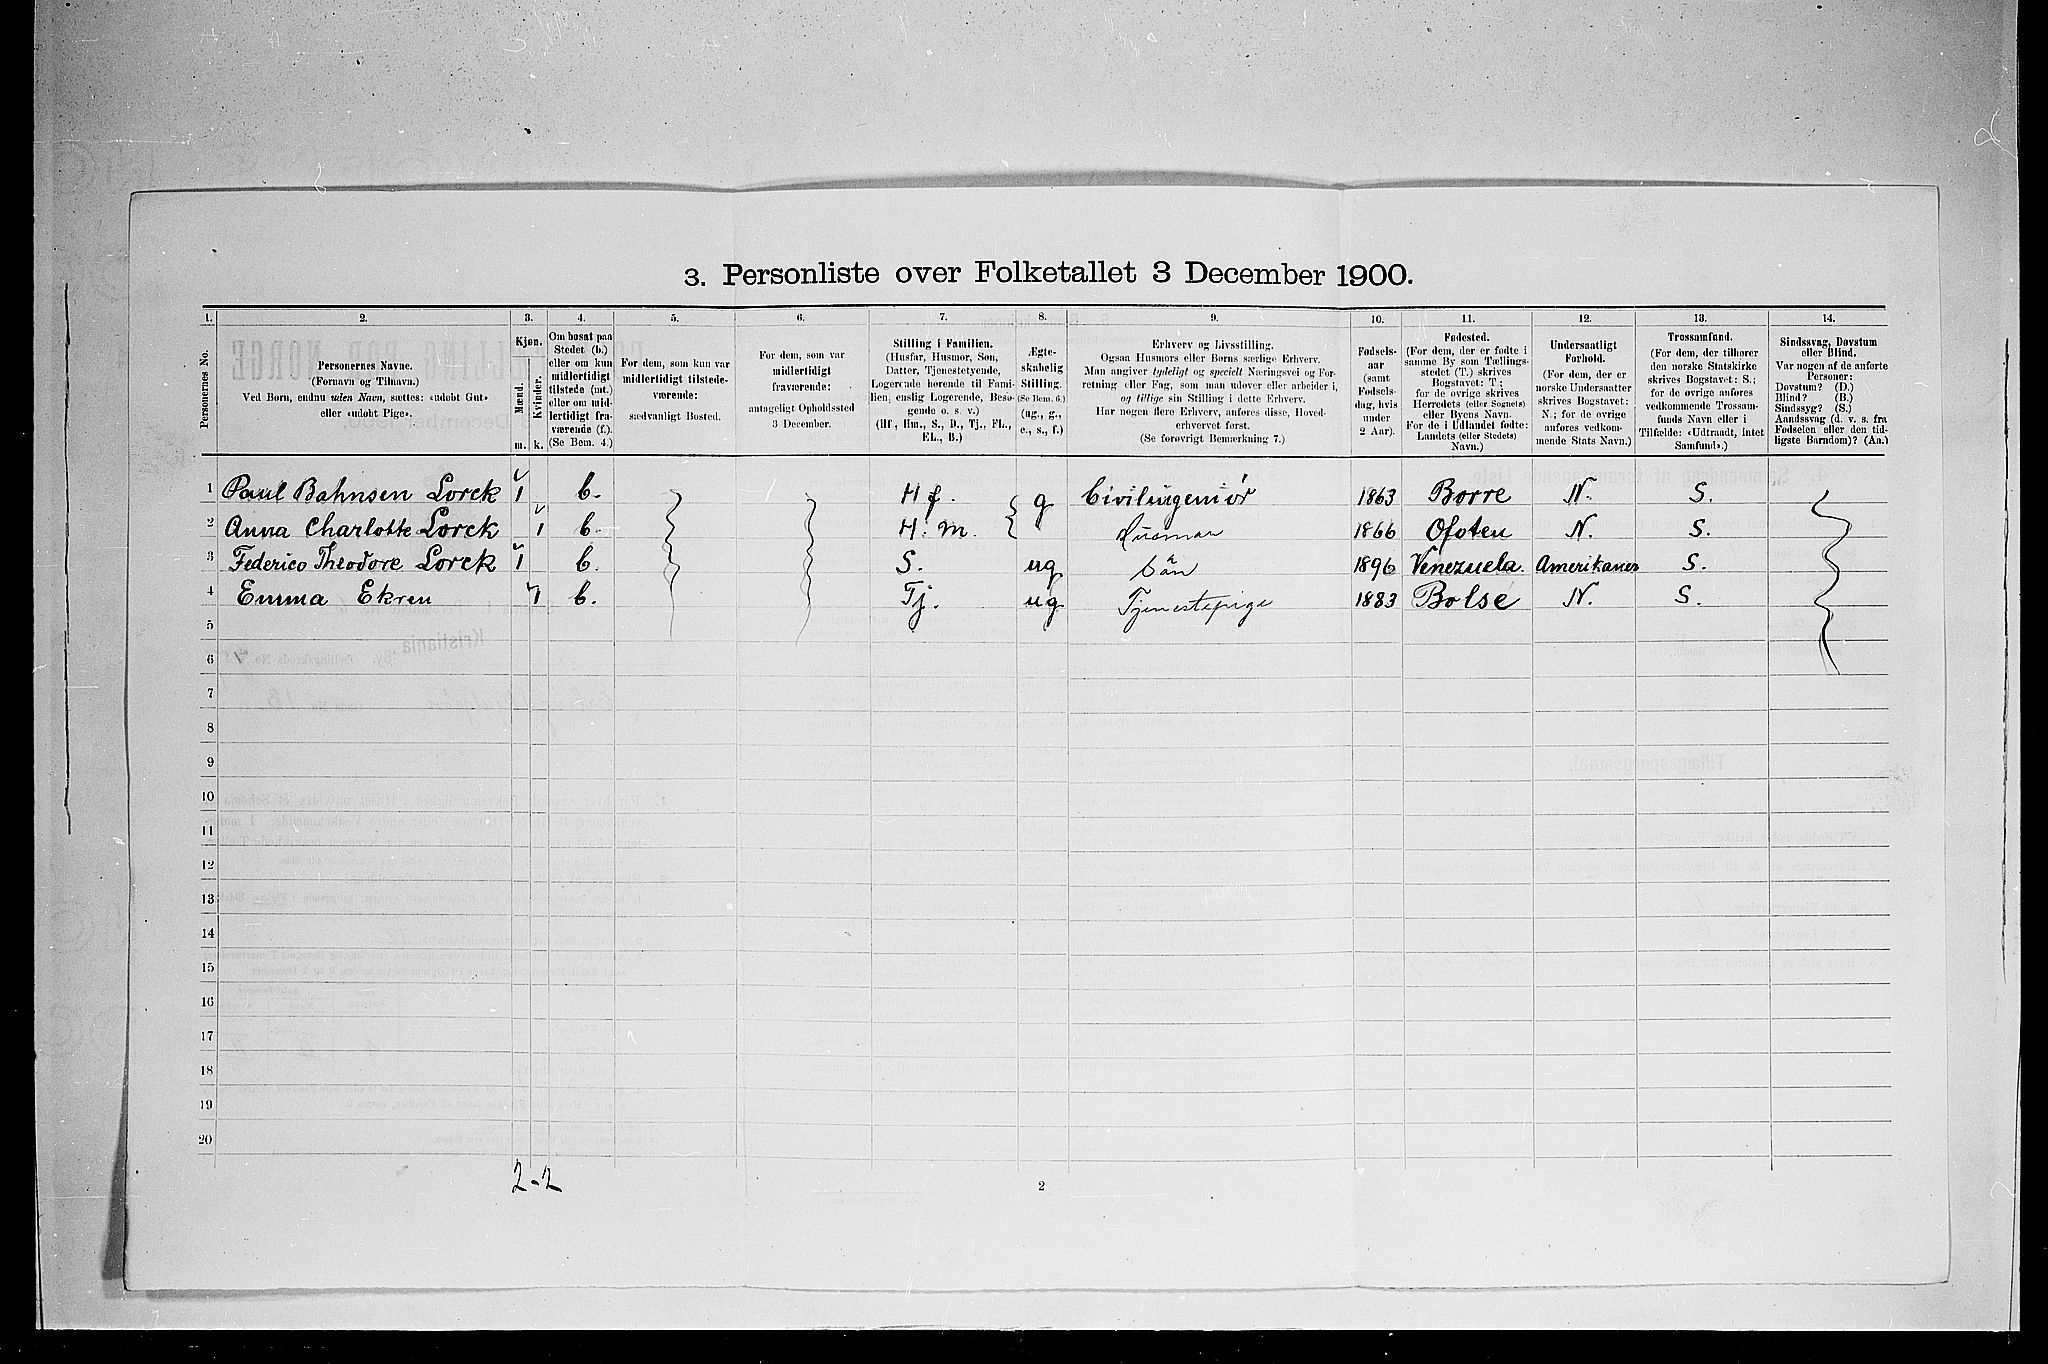 3. Personliste over Folketallet 3 December 1900.
1. 2. 3. 4. 5. 6. 7. 8. 9. 10. 11. 12. 13. 14.
Personernes No.
Personernes Navne.
(Fornavn og Tilnavn.)
Ved Børn, endnu uden Navn, sættes: «udøbt Gut»
eller «udøbt Pige».
Kjøn.
Mænd.
Kvinder.
m. k.
Om bosat paa
Stedet (b.)
eller om kun
midlertidigt
tilstede (mt.)
eller om mid-
lertidigt fra-
værende (f.).
(Se Bem. 4.)
For dem, som kun var
midlertidigt tilstede-
værende:
sædvanligt Bosted.
For dem, som var
midlertidigt
fraværende:
antageligt Opholdssted
3 December.
Stilling i Familien.
(Husfar, Husmor, Søn,
Datter, Tjenestetyende,
Logerende hørende til Fami-
lien, enslig Logerende, Besø-
gende o. s. v.)
(Hf., Hm., S., D., Tj., FL.,
EL., B.)
Ægte-
skabelig
Stilling.
(Se Bem. 6.)
(ug., g.,
e., s., f.)
Erhverv og Livsstilling.
Ogsaa Husmors eller Børns særlige Erhverv.
Man angiver tydeligt og specielt Næringsvei og For-
retning eller Fag, som man udøver eller arbeider i,
og tillige sin Stilling i dette Erhverv.
Har nogen flere Erhverv, anføres disse, Hoved-
erhvervet først.
(Se forøvrigt Bemærkning 7.)
Fødsels-
aar
(samt
Fødsels-
dag, hvis
under
2 Aar).
Fødested.
(For dem, der er fødte i
samme By som Tællings-
stedet (T.) skrives
Bogstavet: T;
for de øvrige skrives
Herredets (eller Sognets)
eller Byens Navn.
For de i Udlandet fødte:
Landets (eller Stedets)
Navn.)
Undersaatligt
Forhold.
(For dem, der er
norske Undersaatter
skrives Bogstavet:
N.; for de øvrige
anføres vedkom-
mende Stats Navn.)
Trossamfund.
(For dem, der tilhører
den norske Statskirke
skrives Bogstavet: S.;
for de øvrige anføres
vedkommende Trossam-
funds Navn eller i
Tilfælde: «Udtraadt, intet
Samfund».)
Sindssvag, Døvstum
eller Blind.
Var nogen af de anførte
Personer:
Døvstum? (D.)
Blind? (B.)
Sindssyg? (S.)
Aandssvag (d. v. s. fra
Fødselen eller den tid-
ligste Barndom)? (Aa.)
1 Paul Bahnsen Lorck 1 b. Hf. g Civilingeniör 1863 Borre N. S.
2 Anna Charlotte Lorck 1 b. H. m. 1866 Ofoten N. S.
3 Federico Theodore Lorck 1 b. S. ug Sön 1896 Venezuela. Amerikaner S.
4 Emma Ekren 1 b. Tj. ug Tjenestepige 1883 Bolsö N. S.
5
6
7
8
9
10
11
12
13
14
15
16
17
18
19
20
2-2
2